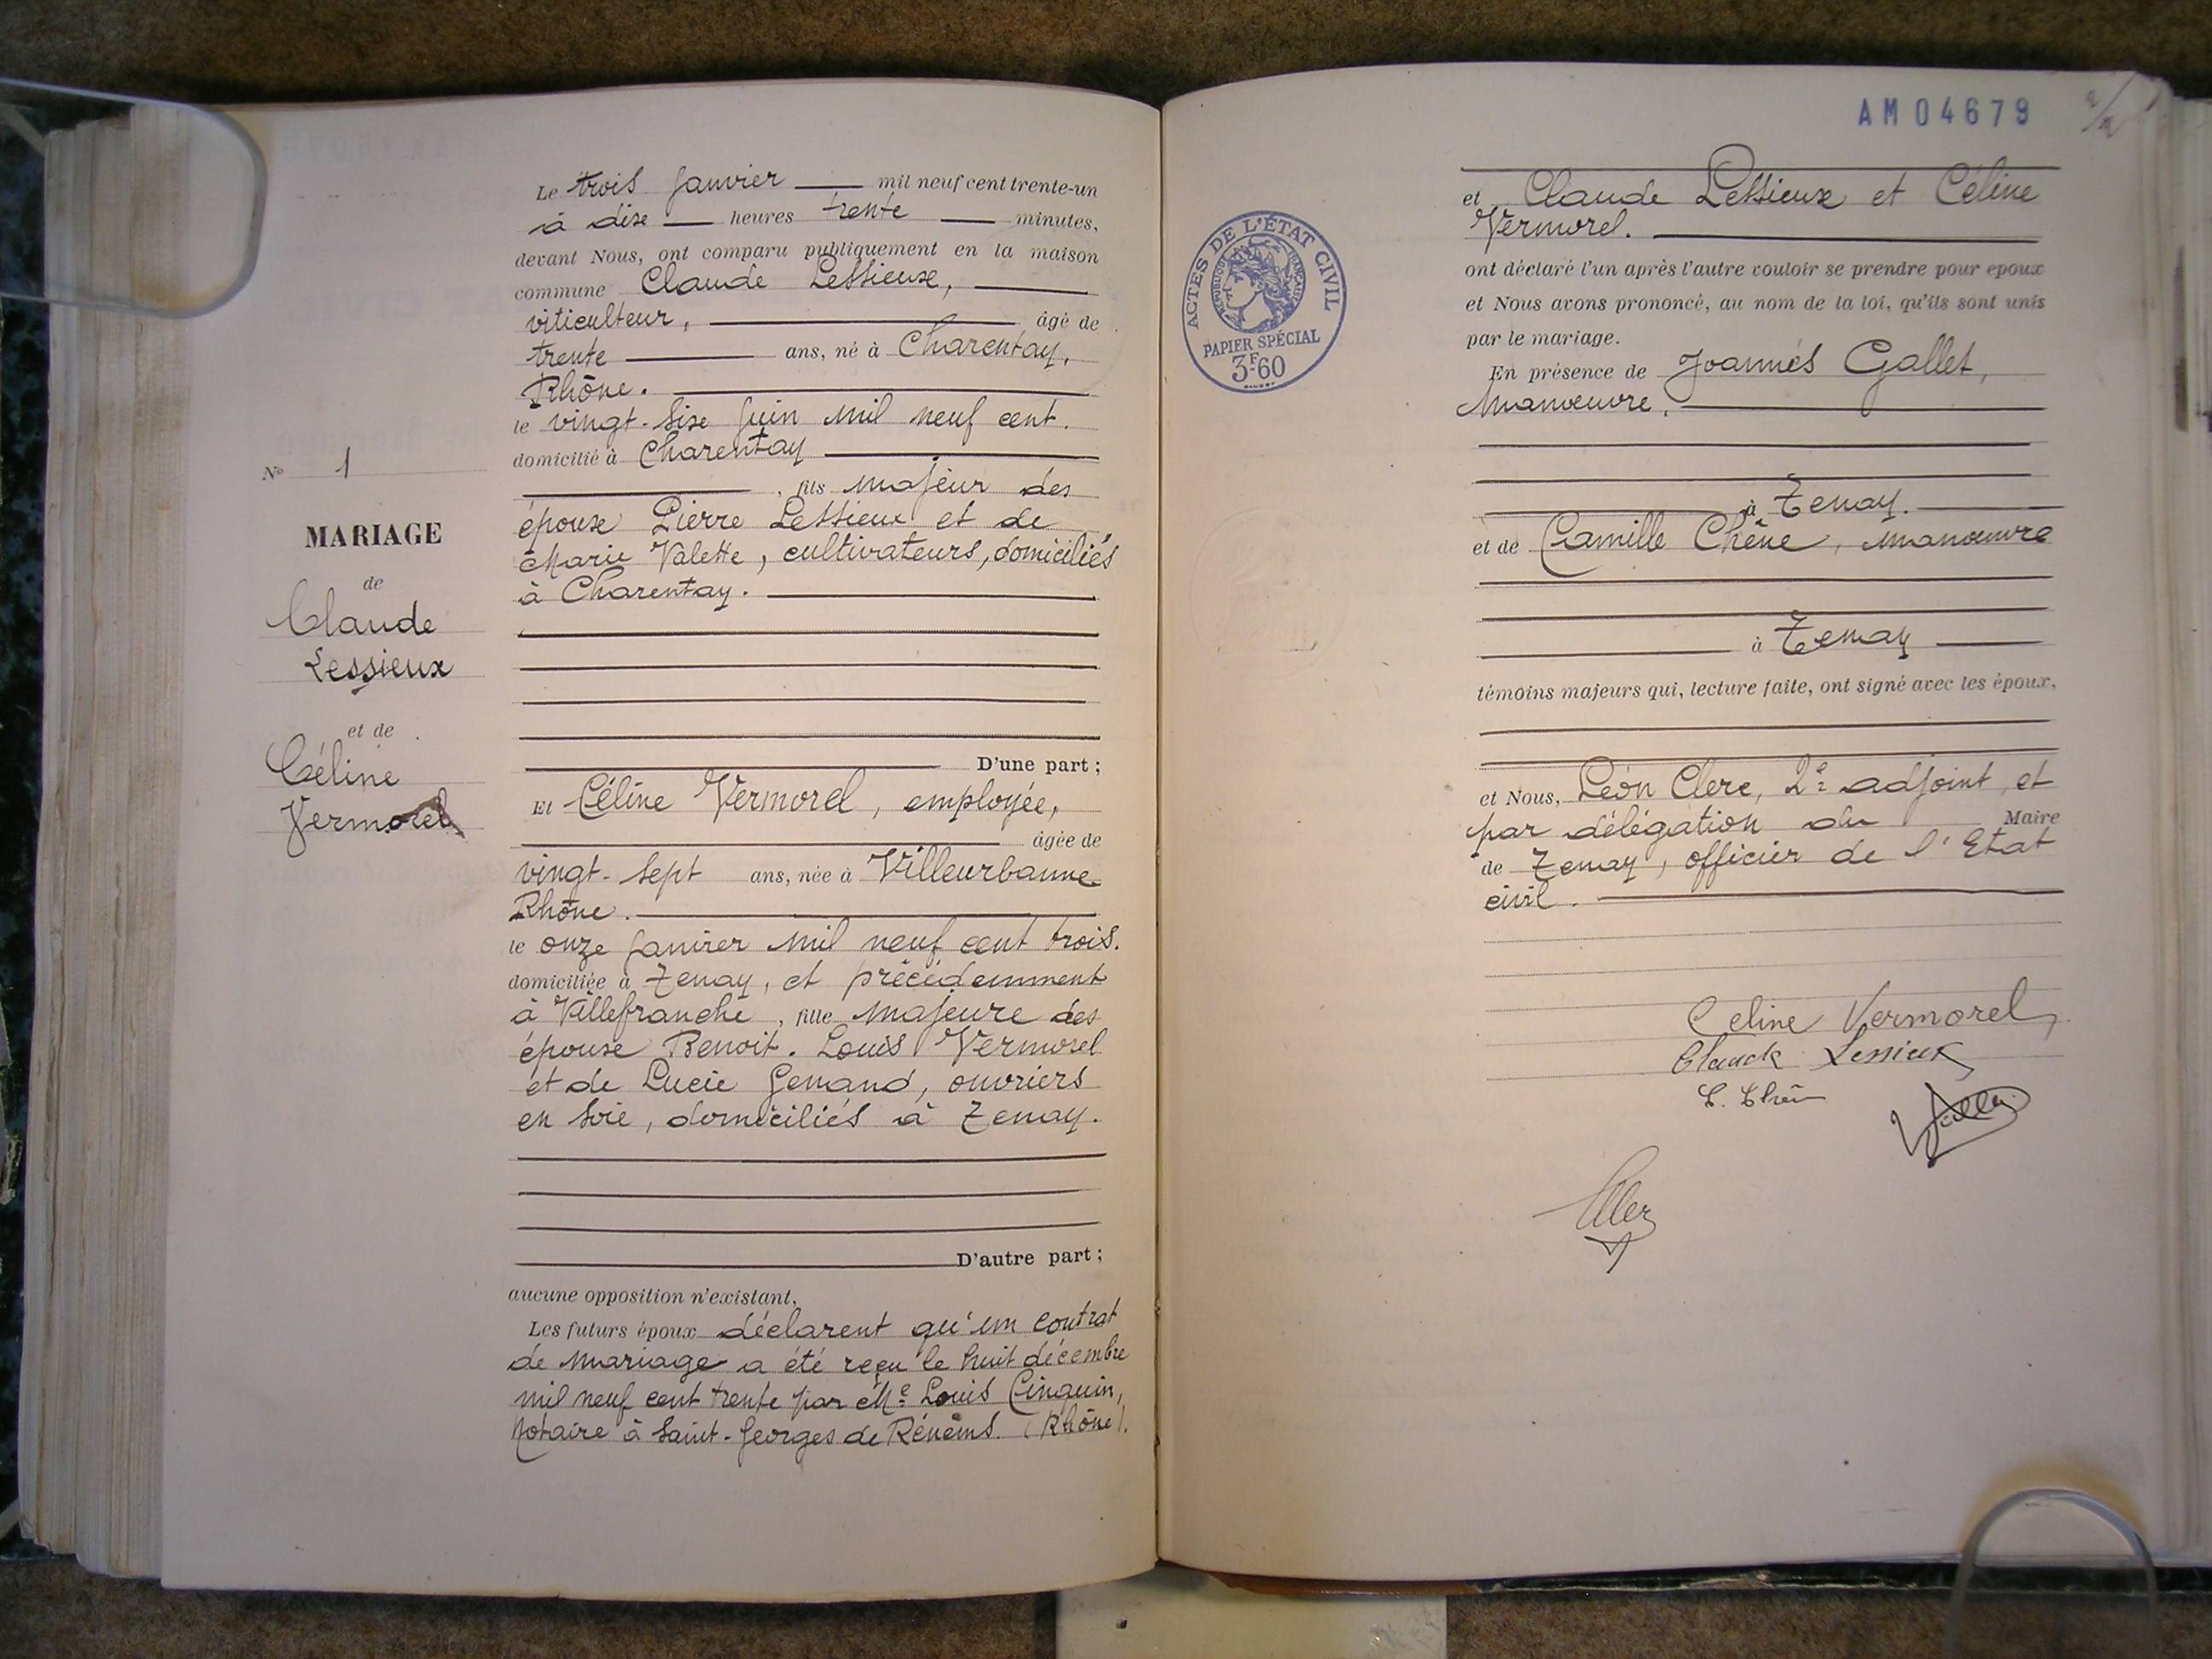 Le trois Janvier mil neuf cent trente-un
à dix heures trente minutes,
devant Nous, ont comparu publiquement en la maison
commune Claude Lessieux,
viticulteur, âgé de
trente ans, né à Charentay,
Rhône.
le vingt-six Juin mil neuf cent.
domicilié à Charentay
, fils majeur des
époux Pierre Lessieux et de
Marie Valette, cultivateurs, domiciliés
à Charentay.
D'une part ;
Et Céline Vermorel, employée,
âgée de
vingt-sept ans, née à Villeurbanne
Rhône.
le onze Janvier mil neuf cent trois.
domiciliée à Tenay, et précédemment
à Villefranche, fille majeure des
époux Benoit-Louis Vermorel
et de Lucie Genand, ouvriers
en soie, domiciliés à Tenay.
D'autre part ;
aucune opposition n'existant,
Les futurs époux déclarent qu'un contrat
de mariage a été reçu le huit décembre
mil neuf cent trente par Me Louis Cinquin,
Notaire à Saint-Georges de Réneins. (Rhône).
No 1
MARIAGE
de
Claude
Lessieux
et de
Céline
Vermorel
AM 04679
ACTES DE L'ÉTAT CIVIL
RÉPUBLIQUE FRANÇAISE
PAPIER SPÉCIAL
3F60
et Claude Lessieux et Céline
Vermorel.
ont déclaré l'un après l'autre vouloir se prendre pour epoux
et Nous avons prononcé, au nom de la loi, qu'ils sont unis
par le mariage.
En présence de Joannès Gallet,
Manœuvre,
à Tenay.
et de Camille Chêne, manœuvre
à Tenay
témoins majeurs qui, lecture faite, ont signé avec les époux,
et Nous, Léon Clerc, 2e adjoint, et
par délégation du Maire
de Tenay, officier de l'Etat
civil.
Celine Vermorel
Claude Lessieux
C. Chêne